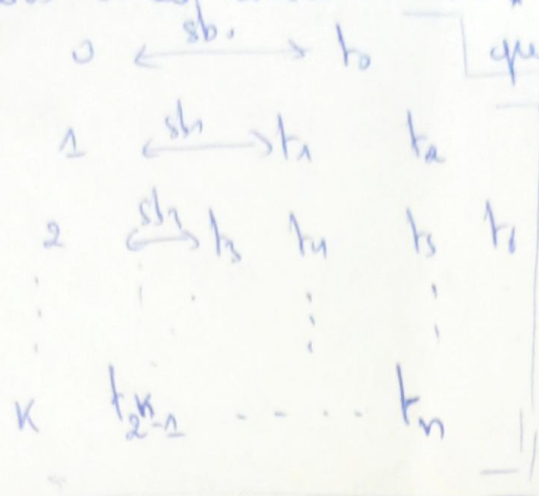 0 ⟷ sb₀ t₀ qu
1 ⟷ sb₁ t₁ t₂
2 ⟷ sb₂ t₃ t₄ t₅ t₆
K t_{2^K-1} ..... t_n